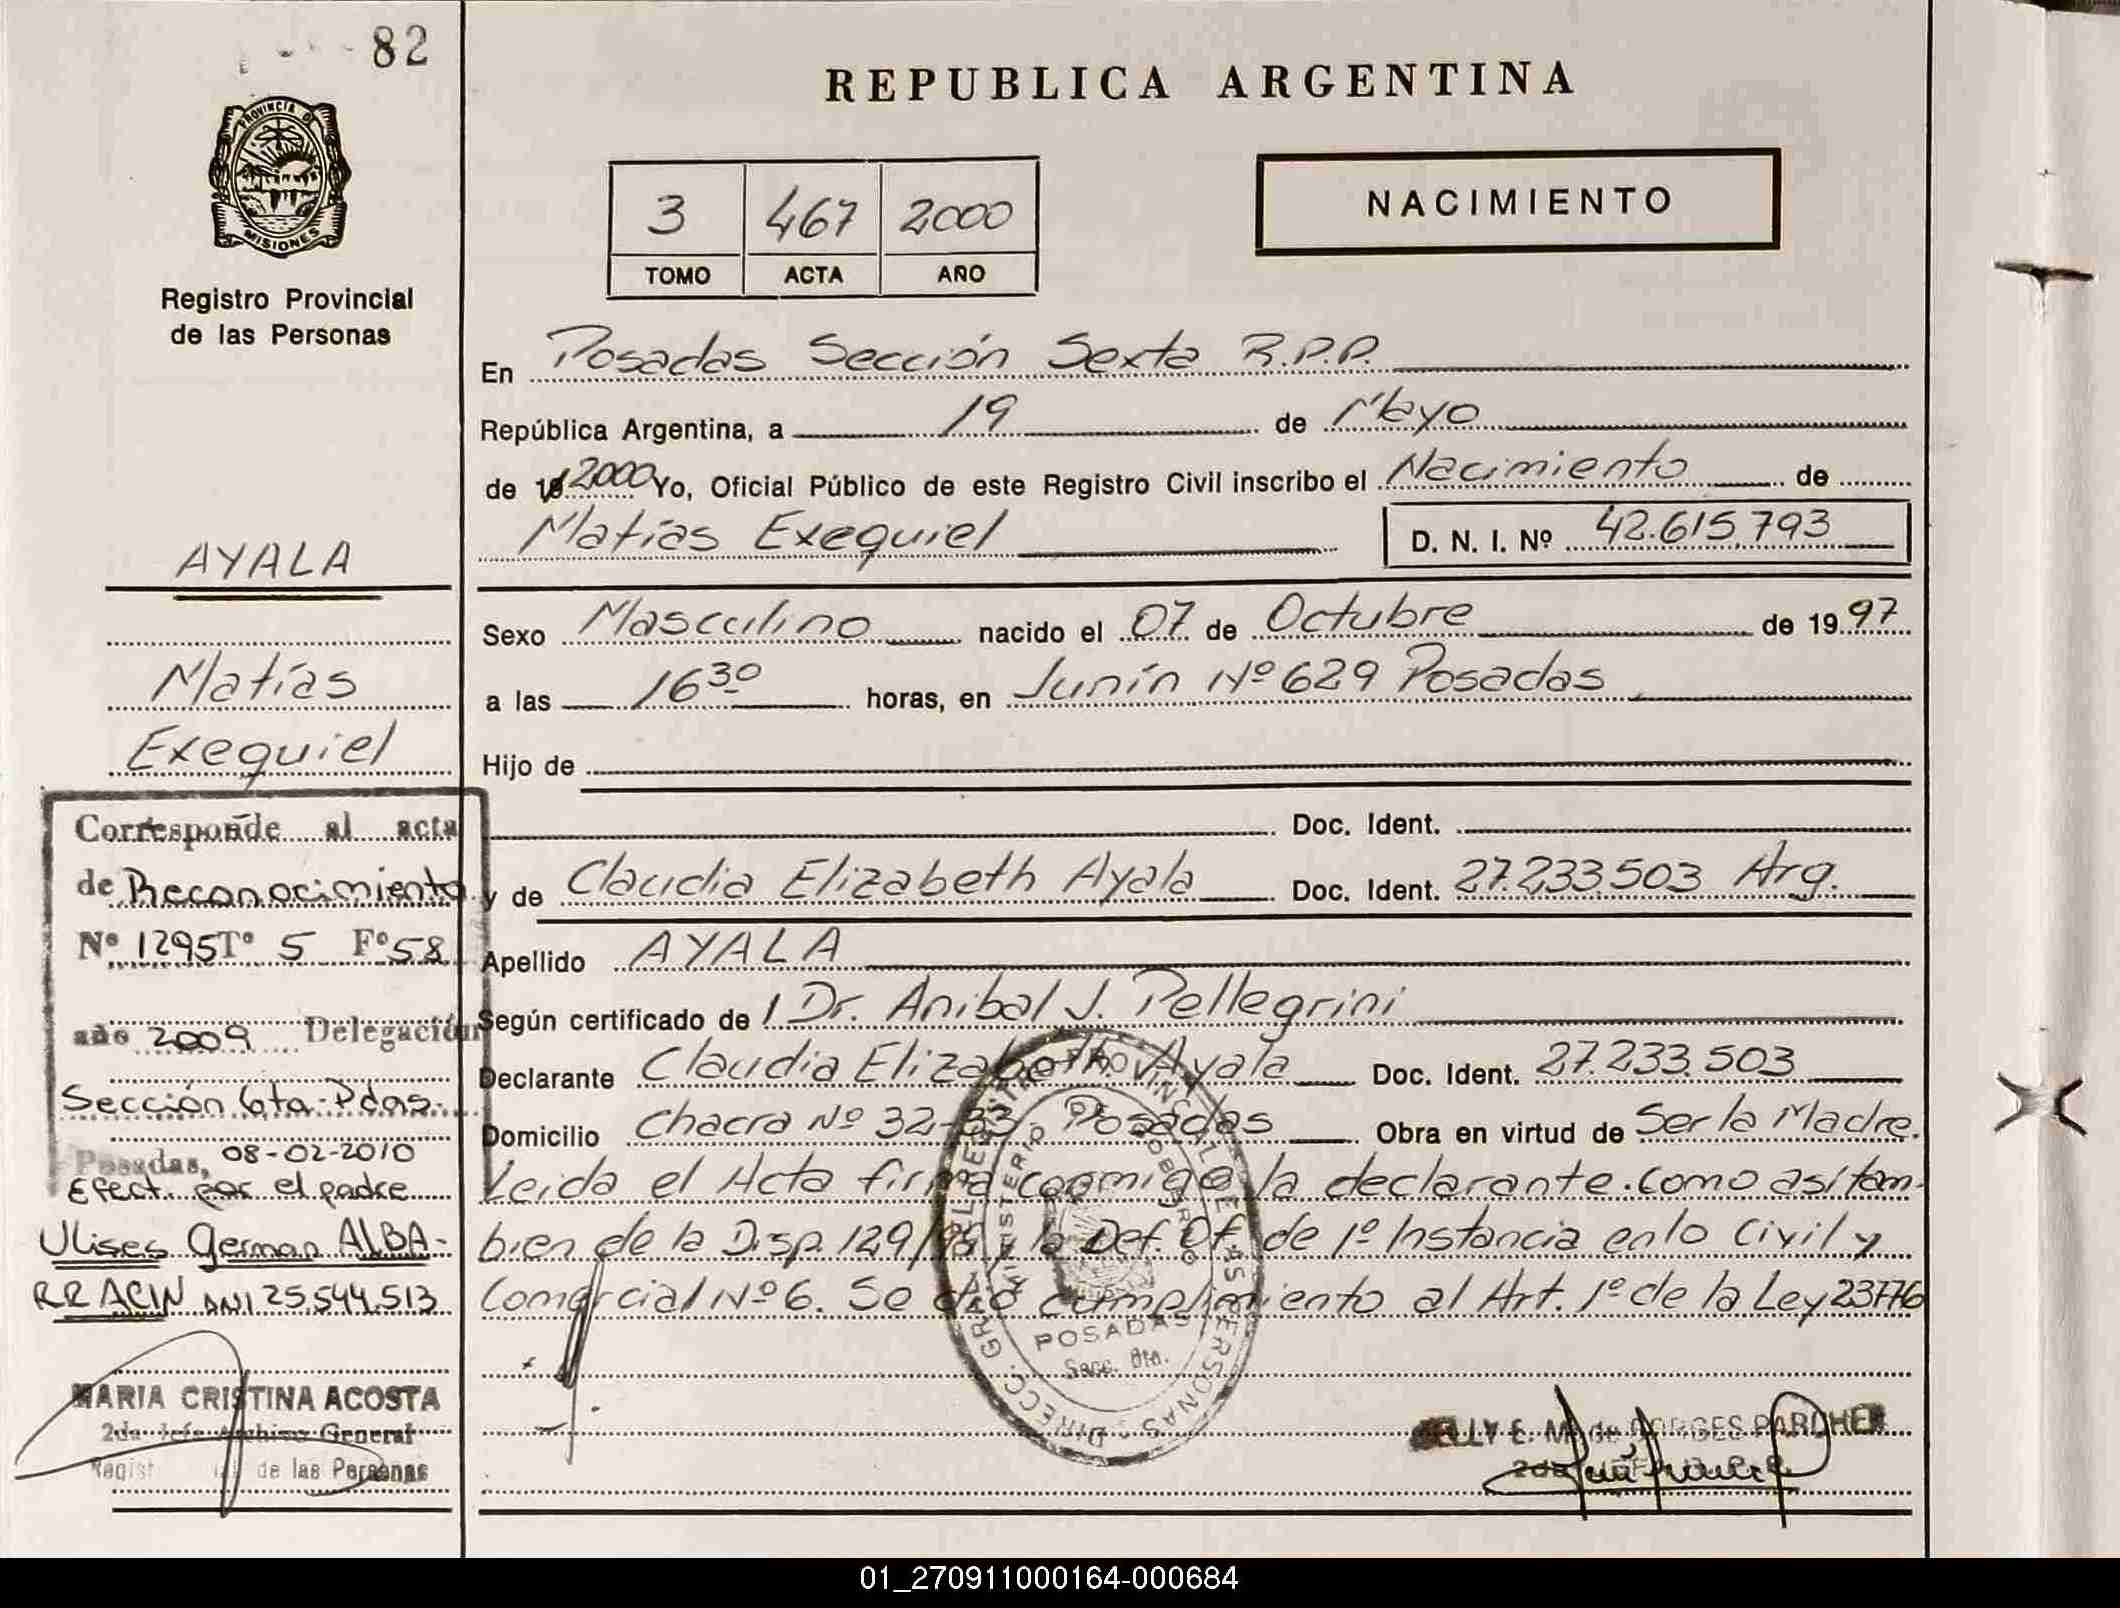 82
REPUBLICA ARGENTINA
PROVINCIA DE
MISIONES
Registro Provincial
de las Personas
3 467 2000
TOMO ACTA AÑO
NACIMIENTO
En Posadas Sección Sexta R.P.P.
República Argentina, a 19 de Mayo
de 2000 Yo, Oficial Público de este Registro Civil inscribo el Nacimiento de
Matías Exequiel D. N. I. Nº 42.615.793
Sexo Masculino nacido el 07 de Octubre de 1997
a las 16 30 horas, en Junín Nº 629 Posadas
Hijo de
Doc. Ident.
y de Claudia Elizabeth Ayala Doc. Ident. 27.233.503 Arg.
Apellido AYALA
Según certificado de Dr. Anibal J. Pellegrini
Declarante Claudia Elizabeth Ayala Doc. Ident. 27.233.503
Domicilio Chacra Nº 32-33 Posadas Obra en virtud de Ser la Madre.
Leida el Acta firma conmigo la declarante. Como asi tam-
bien de la Disp. 129/ y la Def. Of. de 1º Instancia en lo Civil y
Comercial Nº 6. Se dió cumplimiento al Art. 1º de la Ley 23776
POSADAS
Secc. 6ta.
AYALA
Matías
Exequiel
Corresponde al acta
de Reconocimiento
Nº 1295 Tº 5 Fº 58
año 2009 Delegación
Sección 6ta-Pdas.
Posadas, 08-02-2010
Efect. por el padre
Ulises German ALBA-
RRACIN DNI 25.544.513
MARIA CRISTINA ACOSTA
2da Jefe Archivo General
de las Personas
01_270911000164-000684